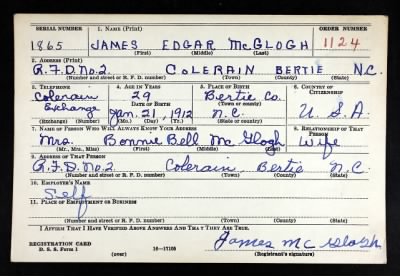 SERIAL NUMBER 1. NAME (Print) ORDER NUMBER
1865 JAMES EDGAR McGLOGH 1124
(First) (Middle) (Last)
2. ADDRESS (Print)
R.F.D. No. 2. COLERAIN BERTIE N.C.
(Number and street or R. F. D. number) (Town) (County) (State)
3. TELEPHONE 4. AGE IN YEARS 5. PLACE OF BIRTH 6. COUNTRY OF CITIZENSHIP
Colerain 29 Bertie Co.
DATE OF BIRTH (Town or county)
Exchange Jan. 21, 1912 N.C. U.S.A.
(Exchange) (Number) (Mo.) (Day) (Yr.) (State or country)
7. NAME OF PERSON WHO WILL ALWAYS KNOW YOUR ADDRESS 8. RELATIONSHIP OF THAT PERSON
Mrs. Bonnie Bell Mc Glogh Wife
(Mr., Mrs., Miss) (First) (Middle) (Last)
9. ADDRESS OF THAT PERSON
R.F.D. No. 2. Colerain Bertie N.C.
(Number and street or R. F. D. number) (Town) (County) (State)
10. EMPLOYER'S NAME
Self
11. PLACE OF EMPLOYMENT OR BUSINESS
(Number and street or R. F. D. number) (Town) (County) (State)
I AFFIRM THAT I HAVE VERIFIED ABOVE ANSWERS AND THAT THEY ARE TRUE.
James Mc Glogh
REGISTRATION CARD
D. S. S. Form 1 16—17105 (Registrant's signature)
(over)